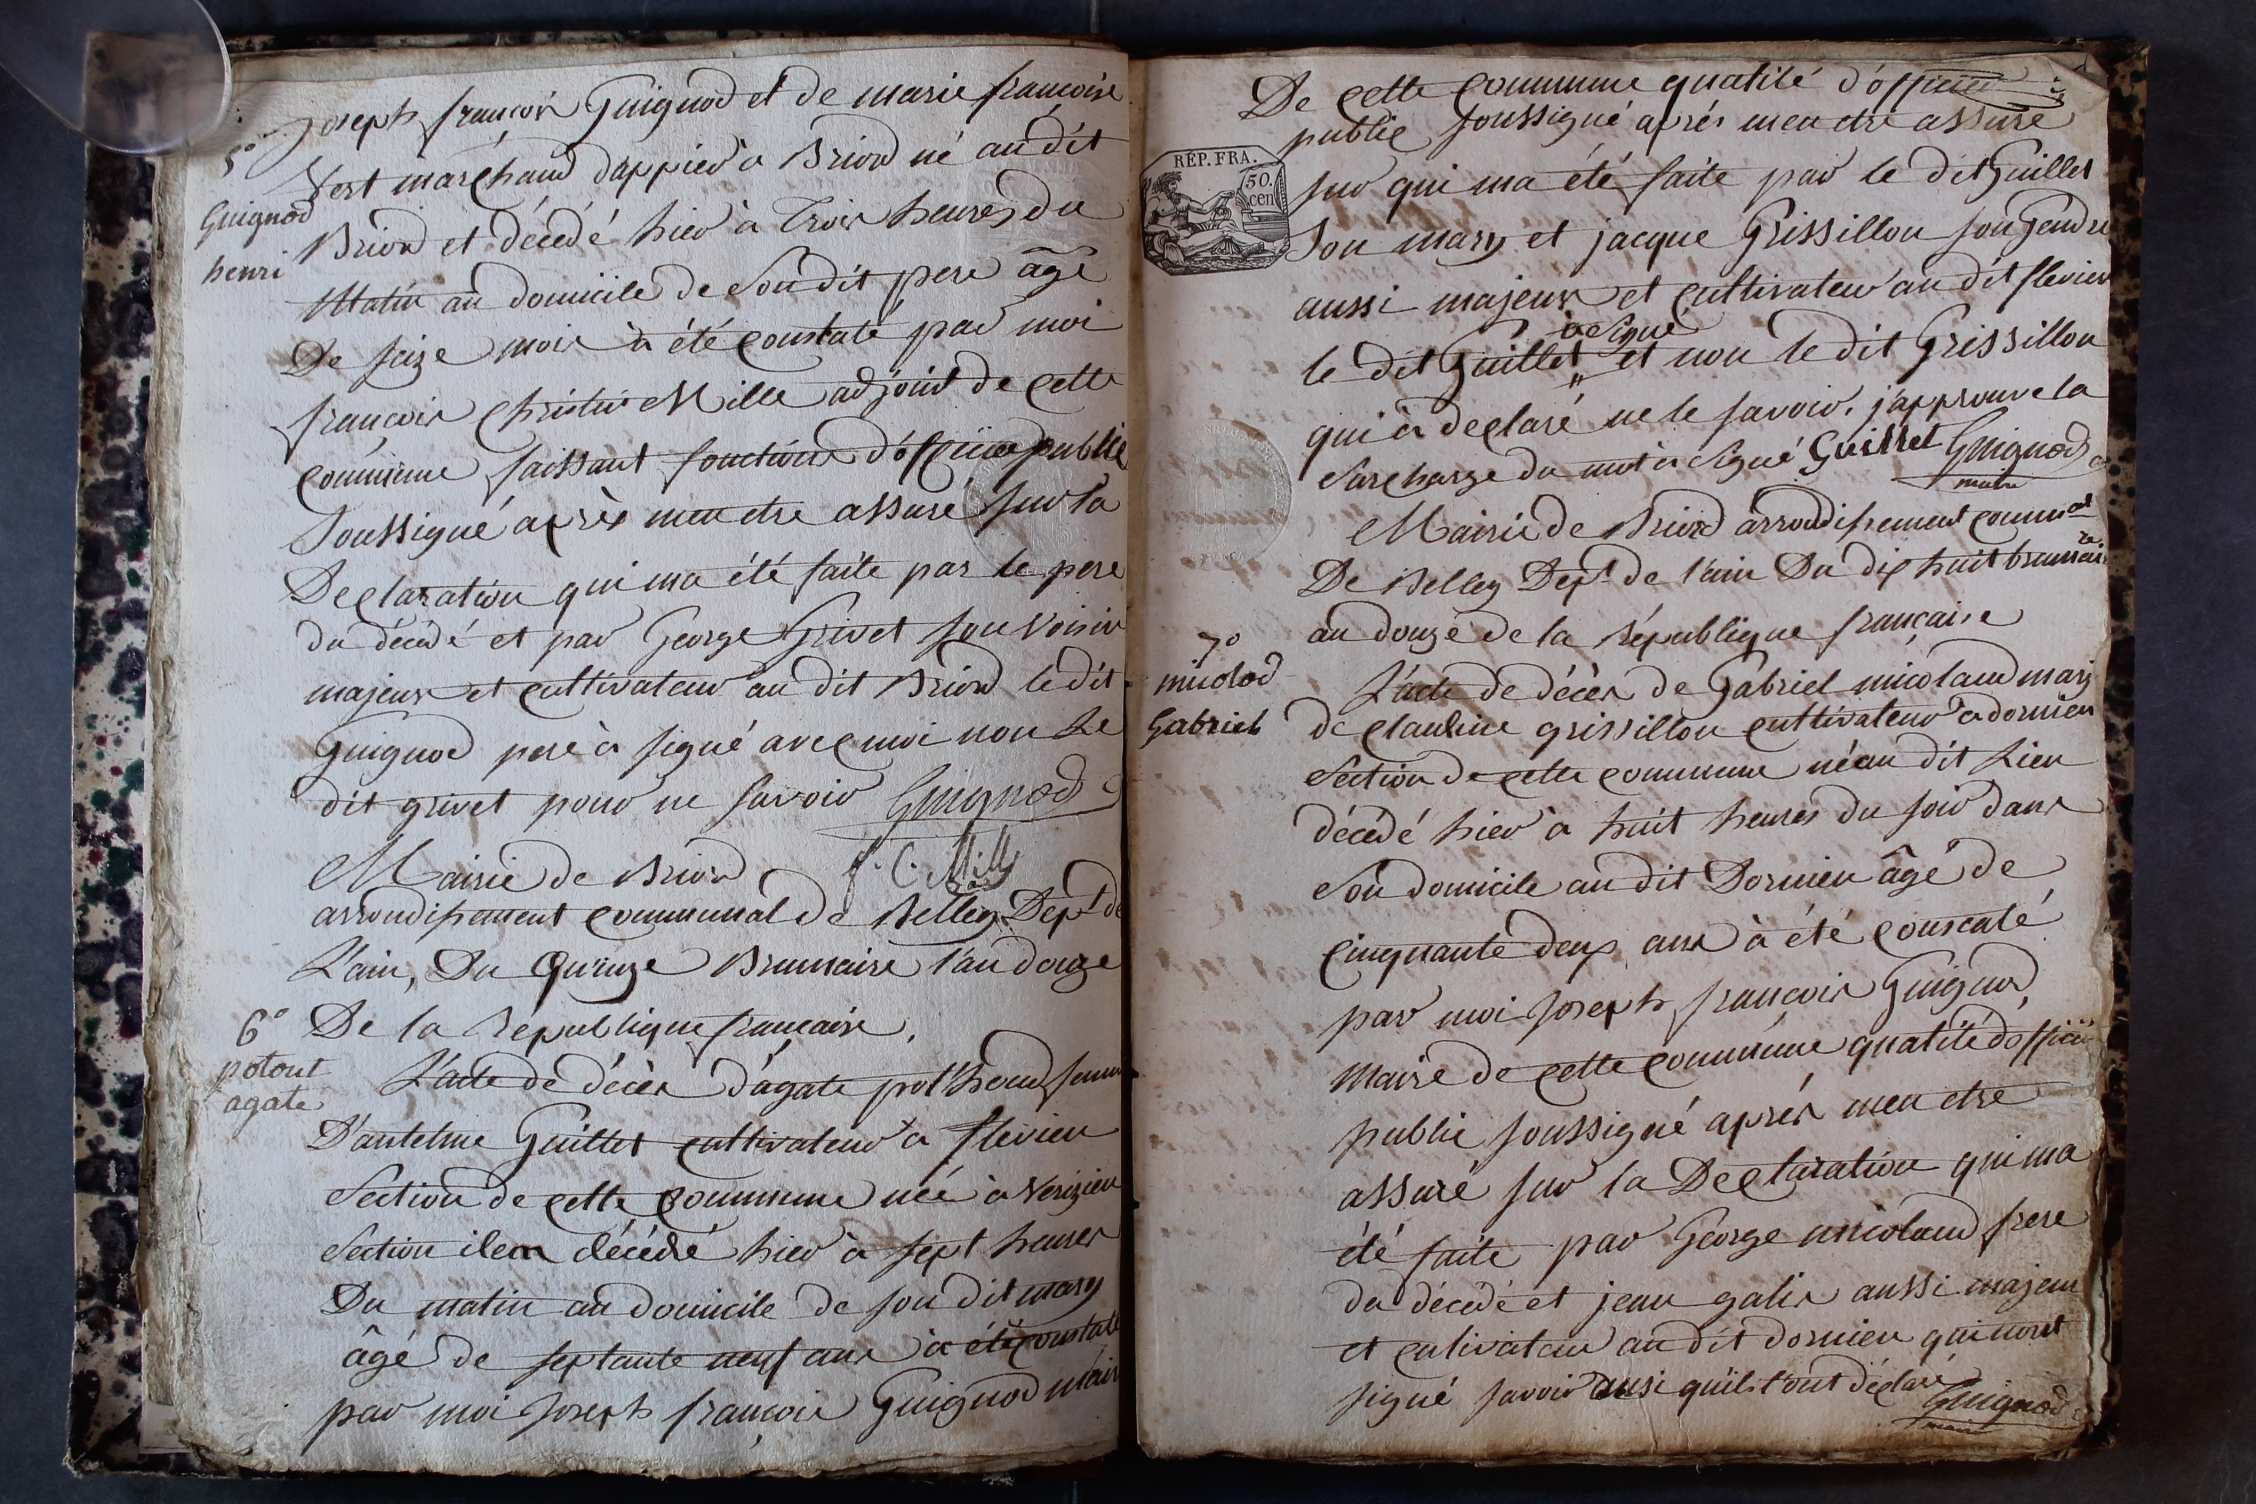 5°
Guignod
henri
Joseph françois Guignod et de marie françoise
Vert marchand drappier à Briord né au dit
Briord et décédé hier à Trois heures du
Matin au domicile de Son dit pere âgé
De seize mois à été constaté par moi
françois Christin Mille adjoint de cette
commune faissant fonction d'officier public
Soussigné après men etre assuré sur la
Declaration qui ma été faite par le pere
du décédé et par George Grivet son voisin
majeur et cultivateur au dit Briord le dit
Guignod pere à signé avec moi non Le
dit grivet pour ne savoir Guignod
Mairie de Briord f. C. Mille
arrondissement communal de Belley Dept de
L'ain, Du Quinze Brumaire l'an douze
De la République française.
6°
potout
agate
L'acte de décès d'agate pot'houd femme
D'antelme Guillet cultivateur à flevieu
Section de cette commune née à Verizieu
Section idem décédé hier à sept heures
Du matin au domicile de son dit mary
âgé de septante neuf ans à été constaté
par moi Joseph françois Guignod maire
De cette commune qualité d'officier
public soussigné après men etre assuré
RÉP. FRA.
50.
cen
sur qui ma été faite par le dit Guillet
Son mary et jacque Grissillon son Gendre
aussi majeur et cultivateur au dit flevieu
à Signé
le dit Guillet " et non le dit Grissillon
qui à declaré ne le savoir. j'approuve la
Surcharge du mot à Signé Guillet Guignod
maire
Mairie de Briord arrondissement commal
De Belley Dept de l'ain Du dix huit brumaire
an douze de la République française
7°
micolod
Gabriel
L'acte de décès de Gabriel micolaud mary
de Claudine grissillon cultivateur à dornieu
Section de cette commune né au dit Lieu
décédé hier à huit heures du soir dans
Son domicile au dit Dornieu âgé de
Cinquante deux ans à été constaté
par moi Joseph françois Guignod
Maire de cette commune qualité d'officier
public soussigné après men etre
assuré sur la Declaration qui ma
été faite par George micolaud frere
du décédé et jean galix aussi majeur
et cultivateur au dit dornieu qui nont
signé savoir ainsi quils l'ont déclaré
Guignod
maire